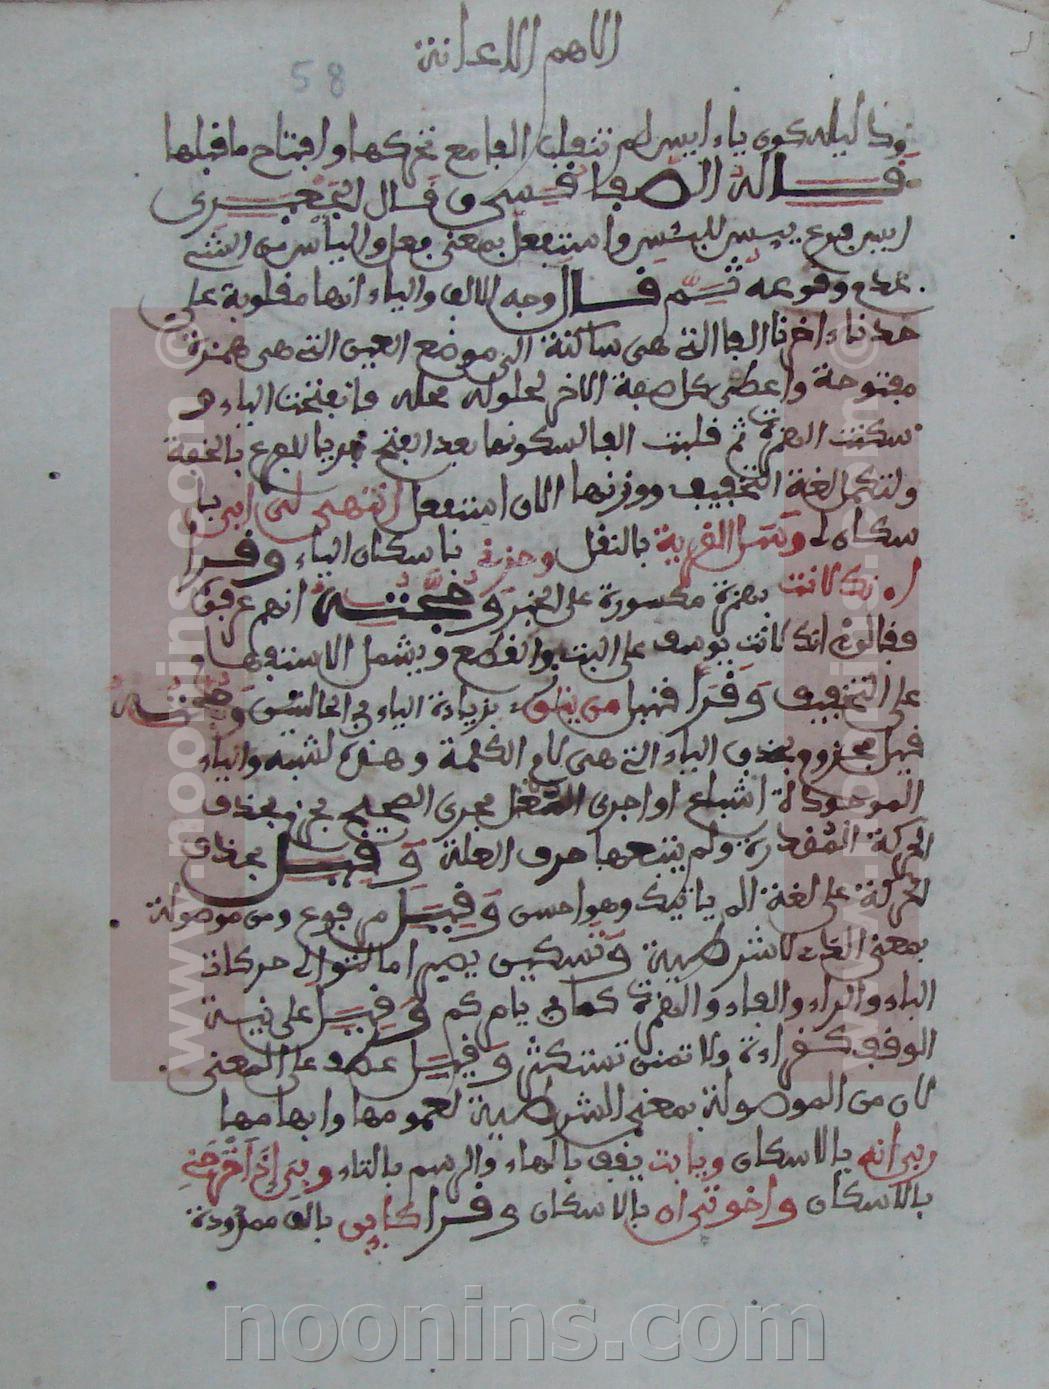 اللهم الاعانة
58
وذا ليل سكون ياء ايس لم تنقلب الفا مع تحركها وافتتاح ما قبلها
قاله الصفاقسي وقال الجعبري
ايس فرع ييس لليس واستفعل بمعنى فعل واليأس من الشيء
عدم وقوعه ثم قال وجه الالف والياء انها مقلوبة على
حد ناء اخرنا الفا التي هي ساكنة الى موضع العين التي هي همزة
مفتوحة واعطي كل صفة الاخر لحلوله محله فانفتحت الياء و
سكنت الهمزة ثم قلبت الفا لسكونها بعد الفتح للفرع بالخفة
ولتكمل لغة التخفيف ووزنها الان استفعل انتهى لي ابي با
سكان وسل القرية بالنقل وحزني با سكان الياء وقرا
انك لانت بهمزة مكسورة على الخبر وحجته انهم عرفوه
فقالوا انك لانت يوسف على البت والقطع ويشمل الاستفهام و
على التخفيف وقرا قنبل من يتق بزيادة الياء في الحالين وحجته
قيل مجزوم بحذف الياء التي هي لام الكلمة وهذه لثبه والياء
الموجودة اشباع او اجرى المعتل مجرى الصحيح فجزم بحذف
الحركة المقدرة ولم يتبعها حرف العلة وقيل بحذف
الحركة على لغة الم ياتيك وهو احسن وقيل مرفوع ومن موصولة
بمعنى الذي لا شرطية وتسكين يصبر اما لتوالي حركات
الباء والراء والفاء والهمزة كما في يامركم وقيل على نية
الوقف كقراءة ولا تمنن تستكثر وقيل عطف على المعنى
لان من الموصولة بمعنى الشرطية لعمومها وابهامها
ربي انه بالاسكان ويابت يقف بالهاء والرسم بالتاء وبي اذ اخرجني
بالاسكان واخوتي ان بالاسكان وقرا كاين بالف ممدودة
www.noonins.com ©
www.noonins.com ©
noonins.com